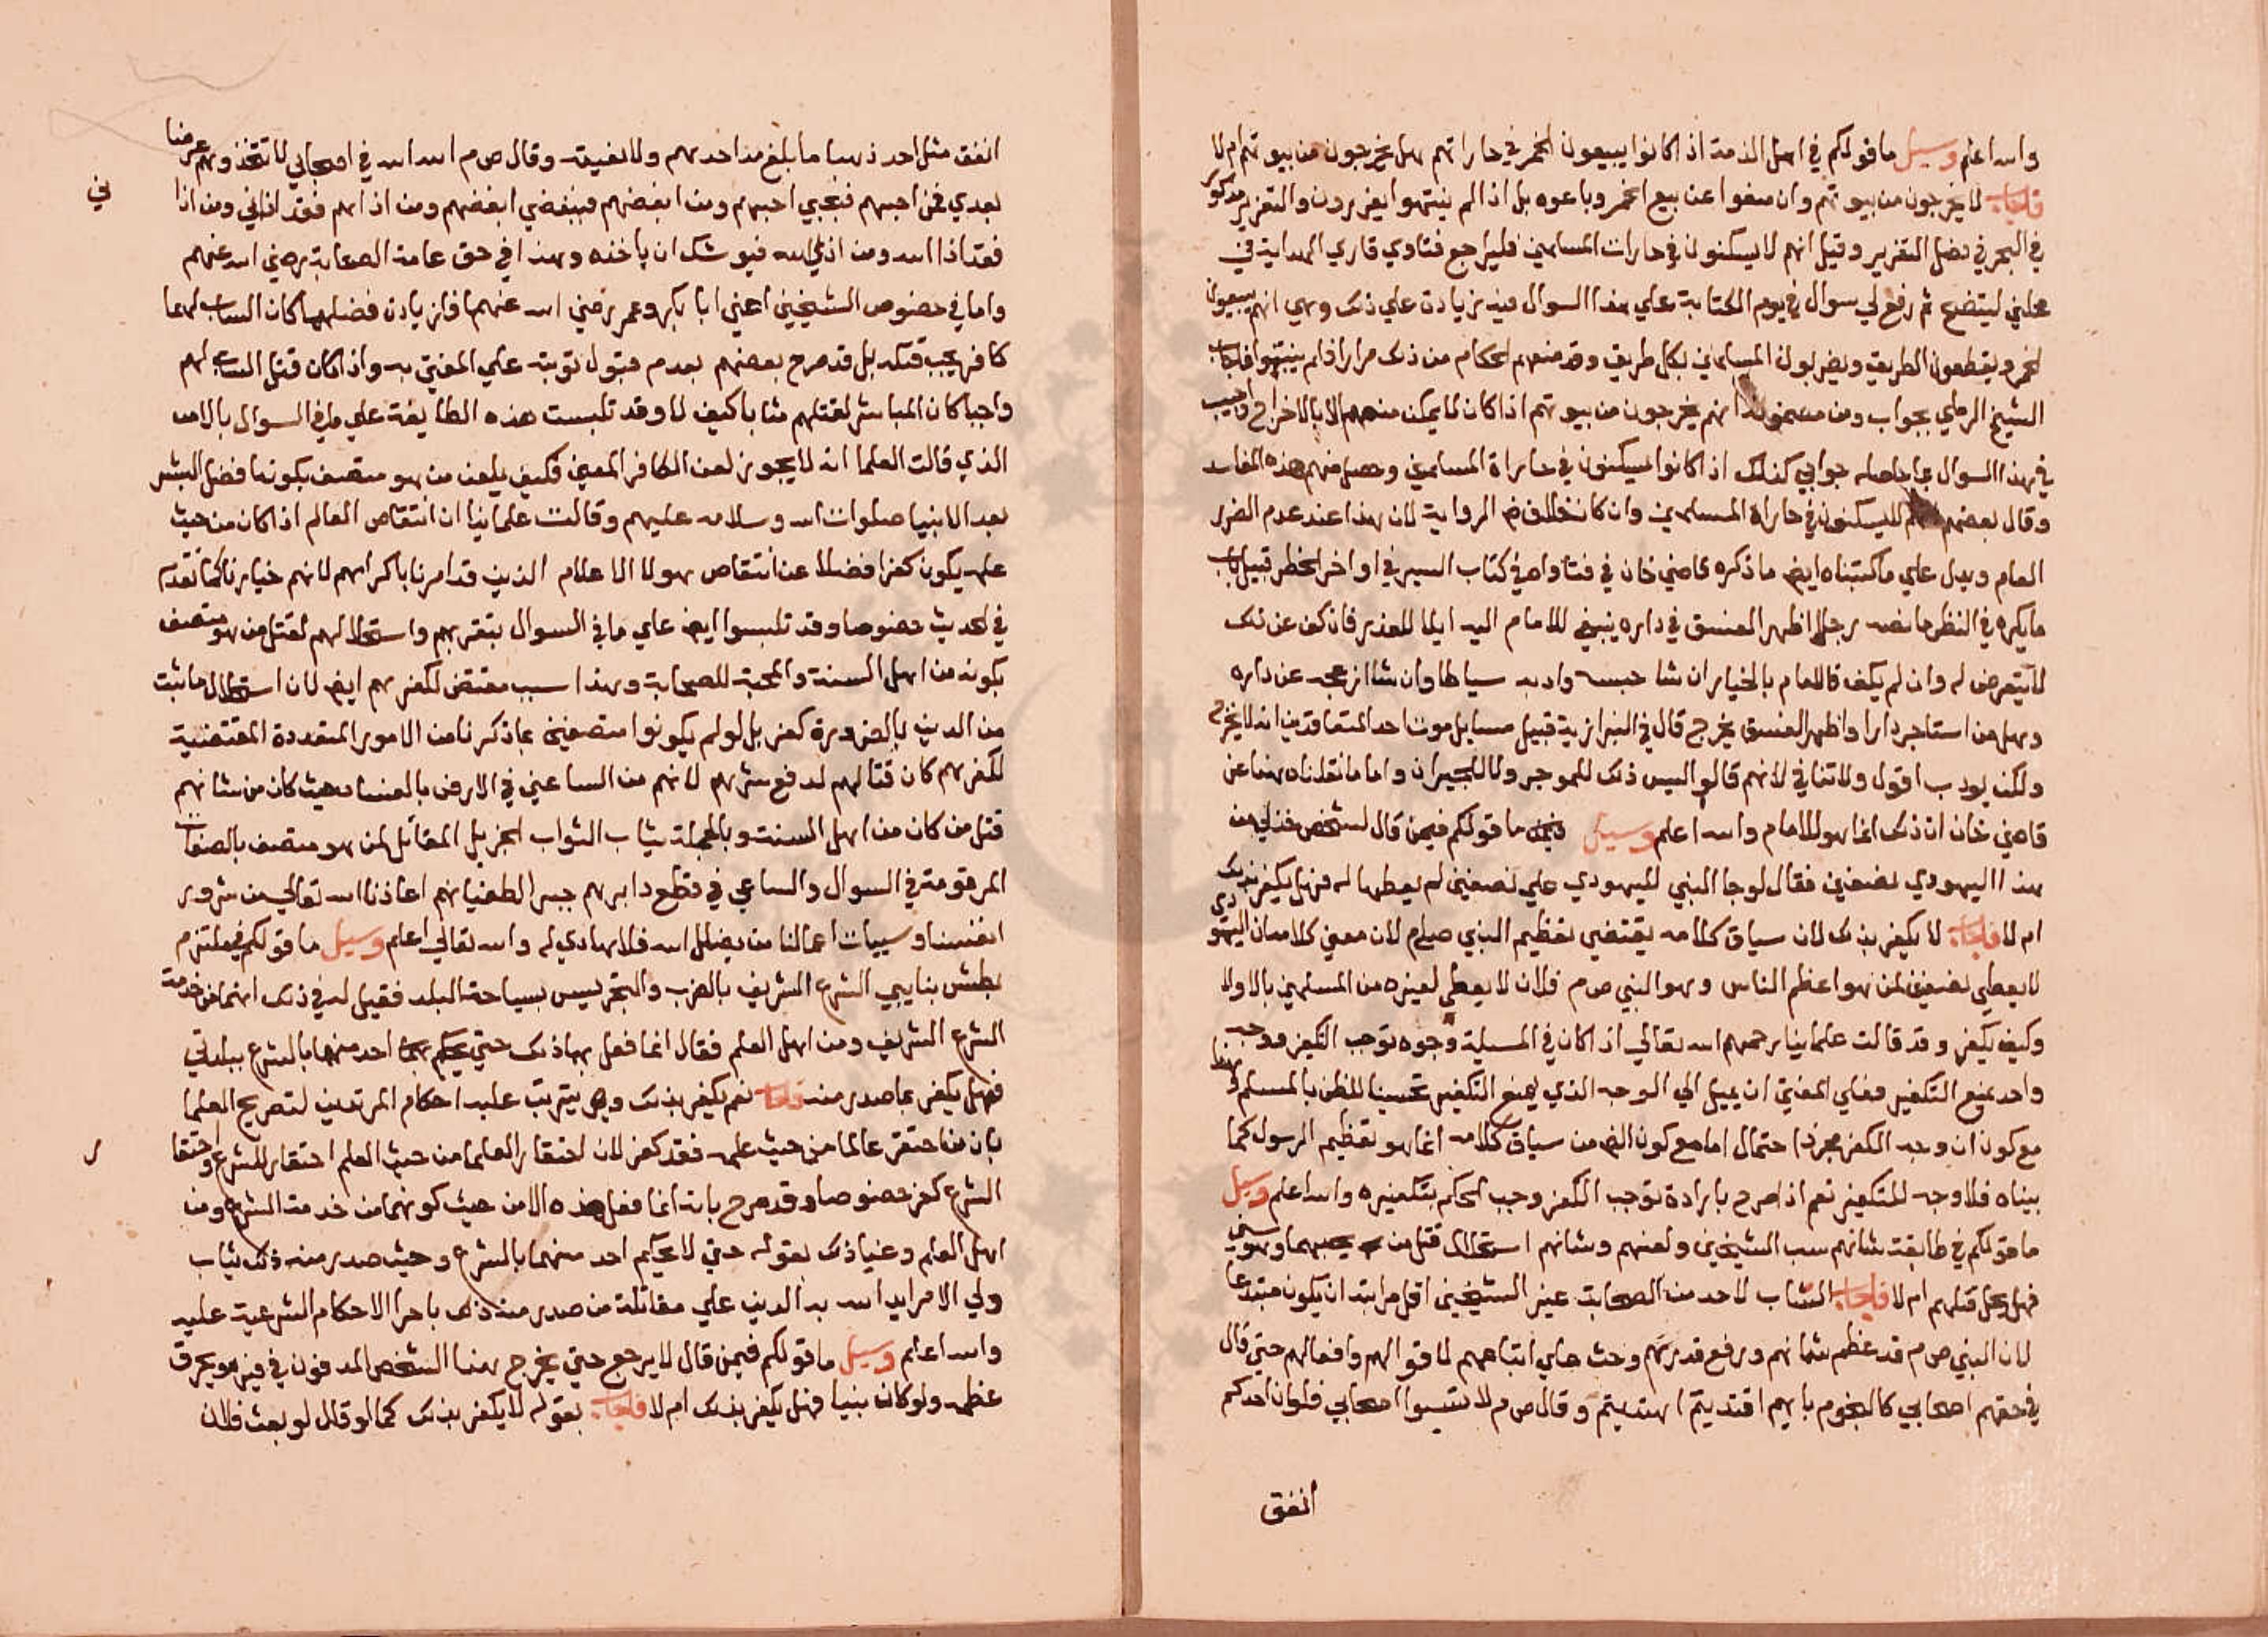 والله اعلم وسيل ما قولكم في اهل الذمة اذا كانوا يبيعون الخمر في حاراتهم هل يخرجون من بيوتهم ام لا
فاجاب لا يخرجون من بيوتهم وان منعوا عن بيع الخمر وباعوه بل اذا لم ينتهوا يعزرون والتعزير مذكور
في البحر في فصل التعزير وقيل انهم لا يسكنون في حارات المسلمين فليراجع فتاوي قاري الهداية في
محلين ليتضح ثم رفع لي سوال في يوم الكتابة علي هذا السوال فيه زيادة علي ذلك وهي انهم يبيعون
الخمر ويقطعون الطريق ويضربون المسلمين بكل طريق وقد منعهم الحكام من ذلك مرارا فلم ينتهوا فاجاب
الشيخ الرملي بجواب ومن مضمونه انهم يخرجون من بيوتهم اذا كان لا يمكن منعهم الا بالاخراج واجيب
في هذا السوال بما حاصله جوابي كذلك اذا كانوا يسكنون في حاراة المسلمين وحصل منهم هذه المفاسد
وقال بعضهم لا يسكنون في حاراة المسلمين وان كان خلاف الرواية لان هذا عند عدم الضرر
العام ويدل علي ما كتبناه ايضا ما ذكره قاضي خان في فتاواه في كتاب السير في اواخر الحظر قبيل باب
ما يكره في النظر ما نصه رجل اظهر الفسق في داره ينبغي للامام اليه ابلا للعذر فان كف عن ذلك
لا يتعرض له وان لم يكف فالامام بالخيار ان شا حبسه وادبه سياطا وان شا ازعجه عن داره
وهل من استاجر دارا واظهر الفسق يخرج قال في البزازية قبيل مسايل موت احد المتعاقدين انه لا يخرج
ولكن يودب اقول ولا تنافي لانهم قالوا ليس ذلك للموجر ولا للجيران واما ما نقلناه هنا عن
قاضي خان ان ذلك انما هو للامام والله اعلم وسيل ما قولكم فيمن قال لشخص
هذا اليهودي نصفين فقال لو جا النبي لليهودي علي نصفين لم يعطها له فهل يكفر بذلك
ام لا فاجاب لا يكفر بذلك لان سياق كلامه يقتضي تعظيم النبي صلعم لان معني كلامه ان اليهودي
لا يعطي نصفين لمن هو اعظم الناس وهو النبي ص م فلان لا يعطي لغيره من المسلمين بالاولا
وكيف يكفر وقد قالت علماينا رحمهم الله تعالي اذا كان في المسيلة وجوه توجب التكفير ووجه
واحد يمنع التكفير فعلي المفتي ان يميل الي الوجه الذي يمنع التكفير تحسينا للظن بالمسلم هذا
مع كون ان وجه الكفر مجرد احتمال اما مع كون الغرض من سياق كلامه انما هو تعظيم الرسول كما
بيناه فلا وجه للتكفير نعم اذا صرح بارادة توجب الكفر وجب الحكم بتكفيره والله اعلم وسيل
ما قولكم في طايفة شانهم سب الشيخين ولعنهم وشانهم استحلال قتل من يحبهما وهو سني
فهل يحل قتلهم ام لا فاجاب الساب لاحد من الصحابة غير الشيخين اقل مراتبه ان يكون مبتدعا
لان النبي ص م قد عظم شانهم ورفع قدرهم وحث علي اتباعهم لاقوالهم وافعالهم حتي قال
في حقهم اصحابي كالنجوم بايهم اقتديتم اهتديتم وقال ص م لا تسبوا اصحابي فلو ان احدكم
انفق
انفق مثل احد ذهبا ما بلغ مد احدهم ولا نصيفه وقال ص م الله الله في اصحابي لا تتخذوهم غرضا
بعدي فمن احبهم فبحبي احبهم ومن ابغضهم فببغضي ابغضهم ومن اذاهم فقد اذاني ومن اذا
ني
فقد اذا الله ومن اذي الله فيوشك ان ياخذه وهذا في حق عامة الصحابة رضي الله عنهم
واما في خصوص الشيخين اعني ابا بكر وعمر رضي الله عنهما فلزيادة فضلهما كان الساب لهما
كافر يجب قتله بل قد صرح بعضهم بعدم قبول توبته علي المفتي به واذا كان قتل الساب لهم
واجبا كان المباشر لقتلهم مثابا كيف لا وقد تلبست هذه الطايفة علي ما في السوال بالامر
الذي قالت العلما انه لا يجوز لعن الكافر المعين فكيف بلعن من هو متصف بكونه افضل البشر
بعد الانبيا صلوات الله وسلامه عليهم وقالت علماينا ان انتقاص العالم اذا كان من حيث
علمه يكون كفرا فضلا عن انتقاص هولا الاعلام الذين قد امرنا باكرامهم لانهم خيارنا كما تقدم
في الحديث خصوصا وقد تلبسوا ايضا علي ما في السوال بتقربهم واستحلالهم لقتل من هو متصف
بكونه من اهل السنة والمحبة للصحابة وهذا سبب مقتض لكفرهم ايضا لان استحلال ما ثبت
من الدين بالضرورة كفر بل لو لم يكونوا متصفين بما ذكرنا من الامور المتعددة المقتضية
لكفرهم كان قتالهم لدفع شرهم لانهم من الساعين في الارض بالفساد حيث كان من شانهم
قتل من كان من اهل السنة وبالجملة يثاب الثواب الجزيل المقاتل لمن هو متصف بالصفات
المرقومة في السوال والساعي في قطع دابرهم جسر الطغيانهم اعاذنا الله تعالي من شرور
انفسنا وسييات اعمالنا من يضلل الله فلا هادي له والله تعالي اعلم وسيل ما قولكم في ملتزم
بطش بنايبي الشرع الشريف بالضرب والتجريس بسياحة البلد فقيل له في ذلك انهما من خدمة
الشرع الشريف ومن اهل العلم فقال انما فعل بهما ذلك حتي لا يحكم احد منهما بالشرع ببلدتي
فهل يكفر بما صدر منه فاجاب نعم يكفر بذلك ويترتب عليه احكام المرتدين لتصريح العلما
بان من احتقر عالما من حيث علمه فقد كفر لان احتقار العلما من حيث العلم احتقار للشرع واحتقا
ر
الشرع كفر خصوصا وقد صرح بانه انما فعل هذه الا من حيث كونهما من خدمة الشرع ومن
اهل العلم وعنيا ذلك بقوله حتي لا يحكم احد منهما بالشرع وحيث صدر منه ذلك يثاب
ولي الامر ايد الله به الدين علي مقاتلة من صدر منه ذلك باجرا الاحكام الشرعية عليه
والله اعلم وسيل ما قولكم فيمن قال لا يرجع حتي يخرج هذا الشخص المدفون في قبره ويحرق
عظمه ولو كان نبيا فهل يكفر بذلك ام لا فاجاب بقوله لا يكفر بذلك كما لو قال لو بعث فلان